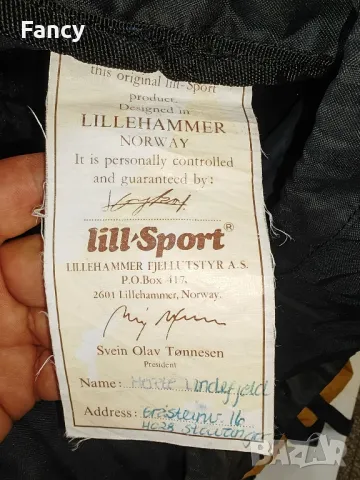 Fancy
this original lill-Sport
product.
Designed in
LILLEHAMMER
NORWAY
It is personally controlled
and guaranteed by:
lill-Sport®
LILLEHAMMER FJELLUTSTYR A.S.
P.O.Box 417,
2601 Lillehammer, Norway.
Svein Olav Tønnesen
President
Name: Lindefjeld
Address: 16
4028 Stavanger
bazar